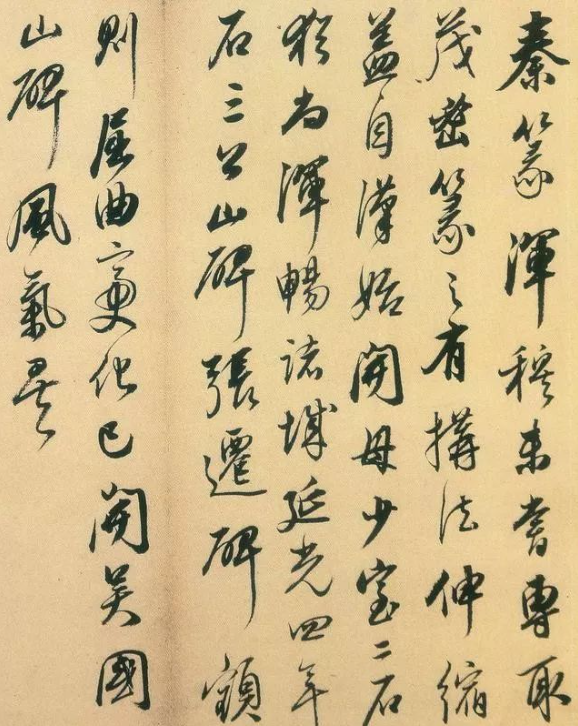 秦篆渾穆未嘗專取
茂密篆之有搆法伸縮
蓋自漢始開母少室二石
猶為渾暢諸城延光四年
石三公山碑張遷碑額
則屈曲變化已開吳國
山碑風氣矣